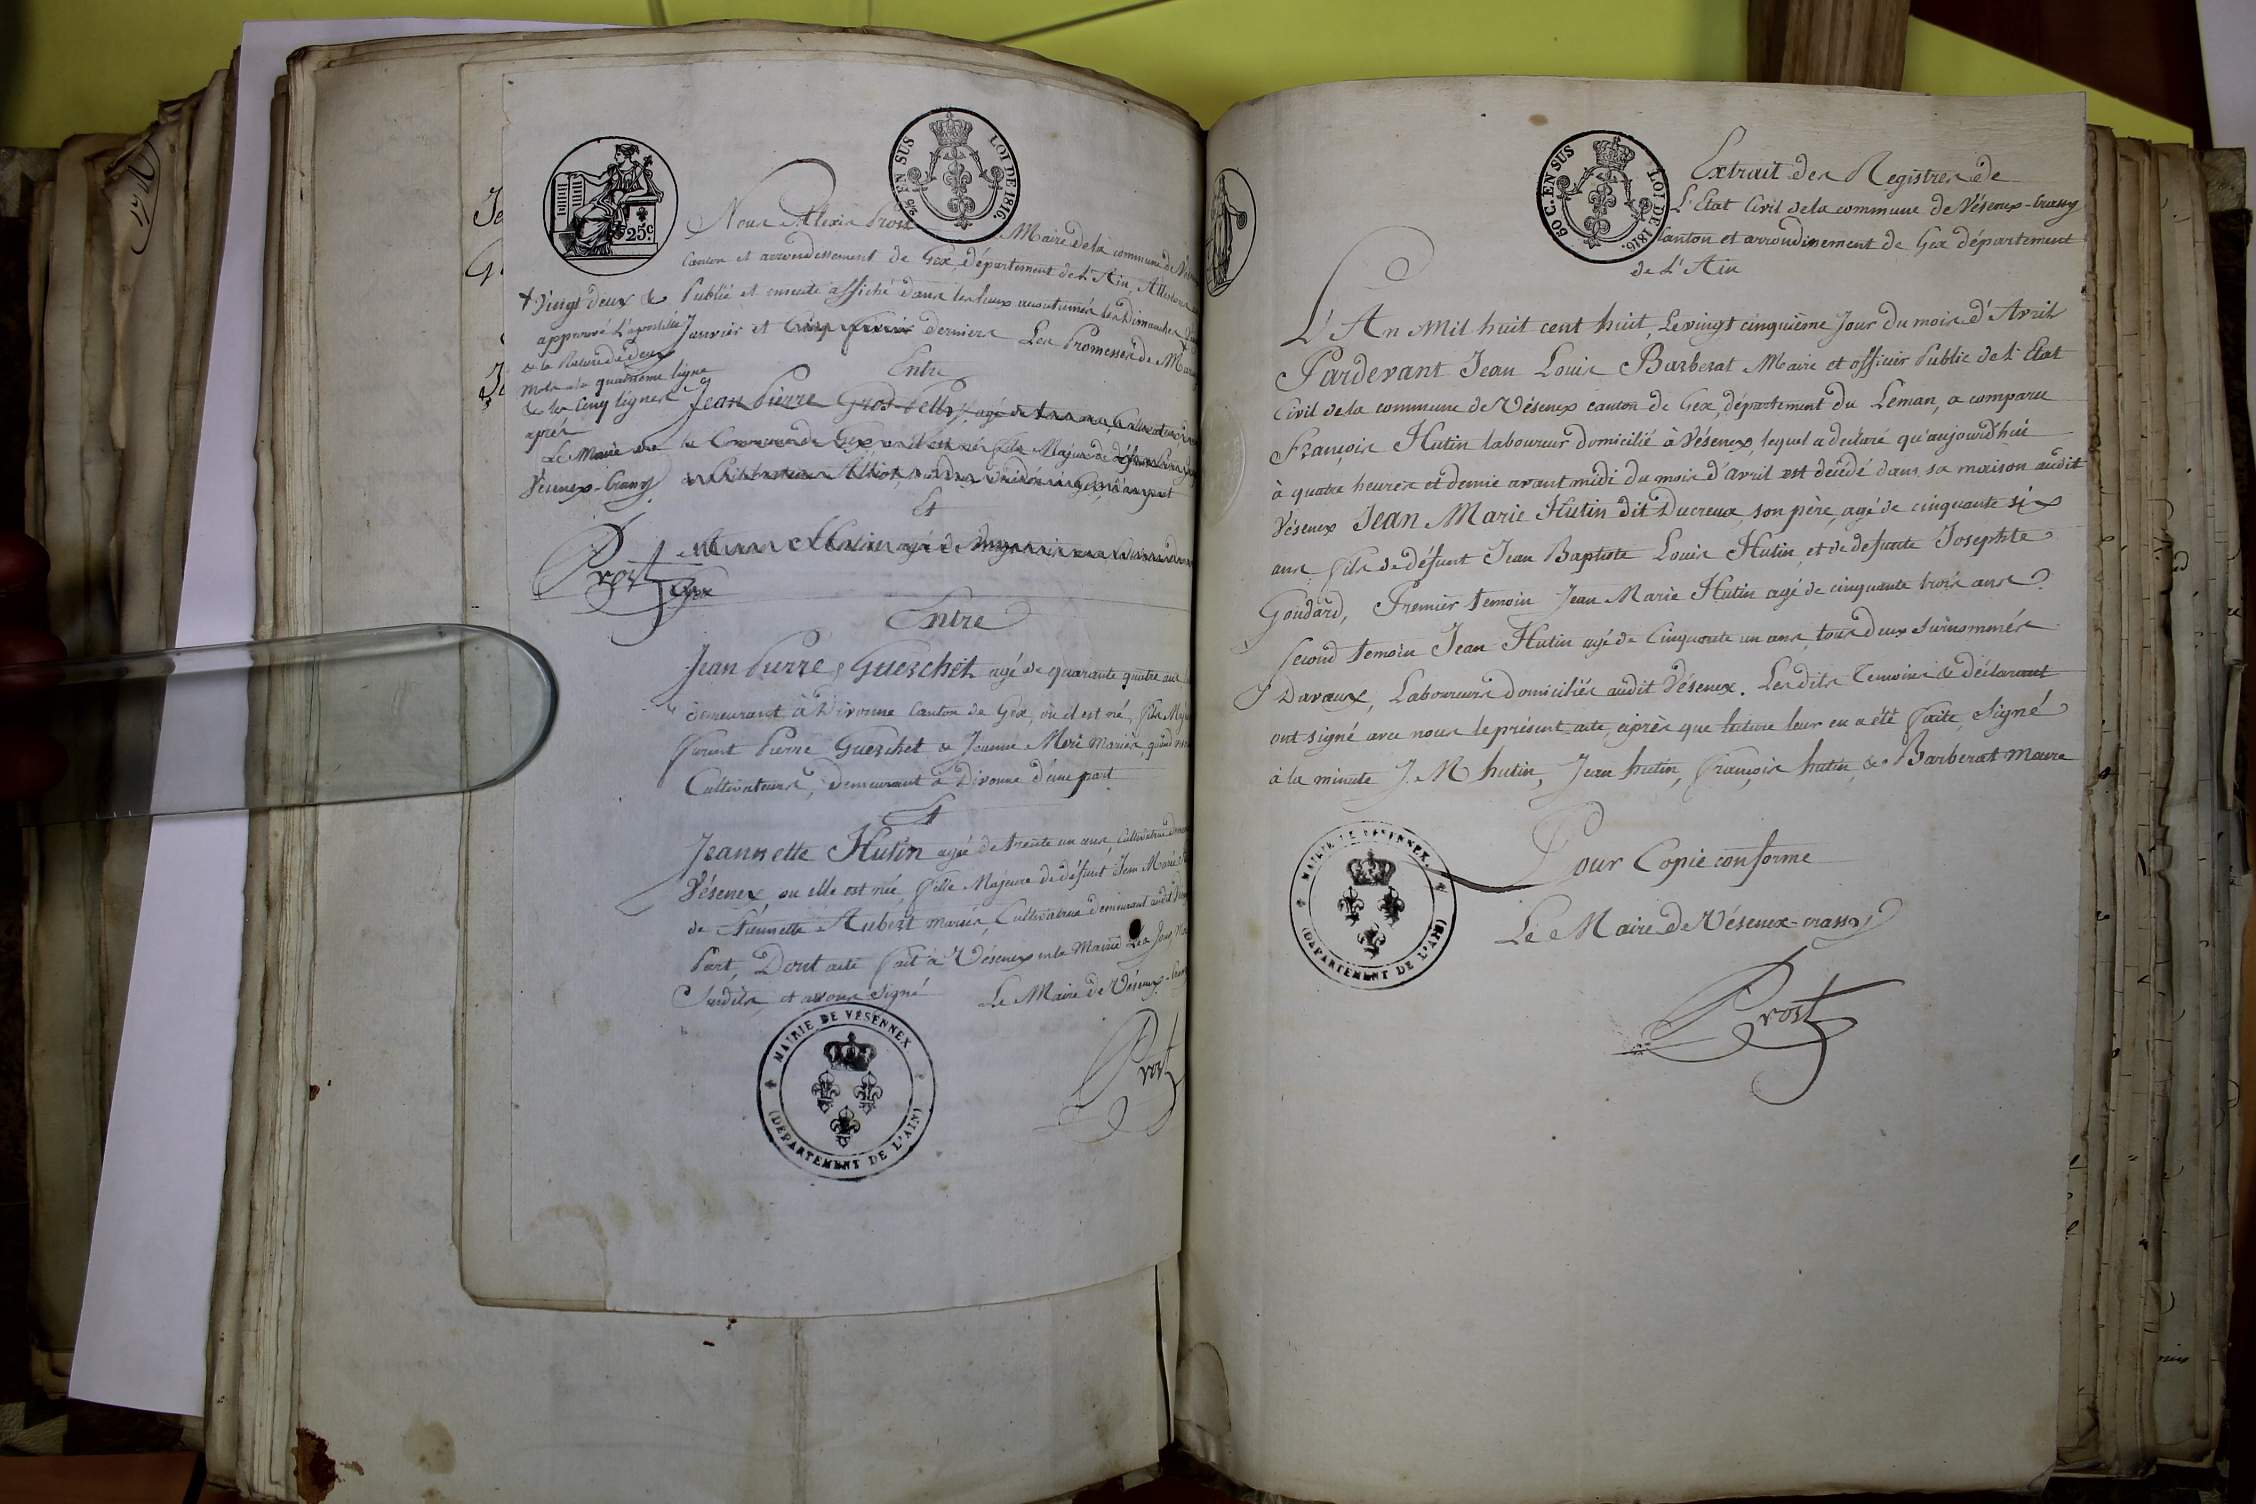 25c.
2/5 EN SUS LOI DE 1816.
Nous Alexis Prost Maire de la commune de
Canton et arrondissement de Gex, département de l'Ain, Attestons
Publié et ensuite affiché dans les lieux accoutumés les Dimanches
Janvier et Cinq Février derniers Les Promesses de
Entre
Jean Pierre Gros Pelly, agé de
Et
+ Vingt deux &
approuvé l'apostille
& la Rature de deux
Mots a la quatrième ligne
& les Cinq lignes
après
Le Maire de
Vésenex-Crassy
Prost
Entre
Jean Pierre Guerchet agé de quarante quatre ans
demeurant à Divonne Canton de Gex, où il est né, fils
Pierre Guerchet & Jeanne Meré Mariés, quand
Cultivateurs, demeurant à Divonne d'une part
Et
Jeannette Hutin agée de trente un ans Cultivatrice
Vésenex, ou elle est née, fille Majeure de défunt Jean Marie
de Pernette Aubert mariés, Cultivatrice demeurant audit
Part, Dont acte fait à Vésenex en la Mairie Les Jour
Susdits, et avons signé Le Maire de Vésenex-
MAIRIE DE VÉSENNEX
(DÉPARTEMENT DE L'AIN)
Prost
50 C. EN SUS LOI DE 1816.
Extrait des Registres de
L'Etat Civil de la commune de Vésenex-Crassy
Canton et arrondissement de Gex département
de L'Ain
L'An Mil huit cent huit, Le vingt cinquième Jour du mois d'Avril
Pardevant Jean Louis Barberat Maire et officier Public de l'Etat
Civil de la commune de Vésenex canton de Gex, département du Léman, a comparu
François Hutin laboureur domicilié à Vésenex, lequel a déclaré qu'aujourd'hui
à quatre heures et demie avant midi du mois d'avril est décédé dans sa maison audit
Vésenex Jean Marie Hutin dit Ducreux, son père, agé de cinquante six
ans fils de défunt Jean Baptiste Louis Hutin, et de defunte Josephte
Goudard, Premier temoin Jean Marie Hutin agé de cinquante trois ans
second temoin Jean Hutin agé de Cinquante un ans, tous deux surnommés
Davaux, Laboureurs domiciliés audit Vésenex. Lesdits Temoins & déclarant
ont signé avec nous le présent acte, après que lecture leur en a été faite, Signé
à la minute J. M hutin, Jean hutin, François hutin, & Barberat Maire
MAIRIE DE VÉSENNEX
(DÉPARTEMENT DE L'AIN)
Pour Copie conforme
Le Maire de Vésenex-crassy
Prost